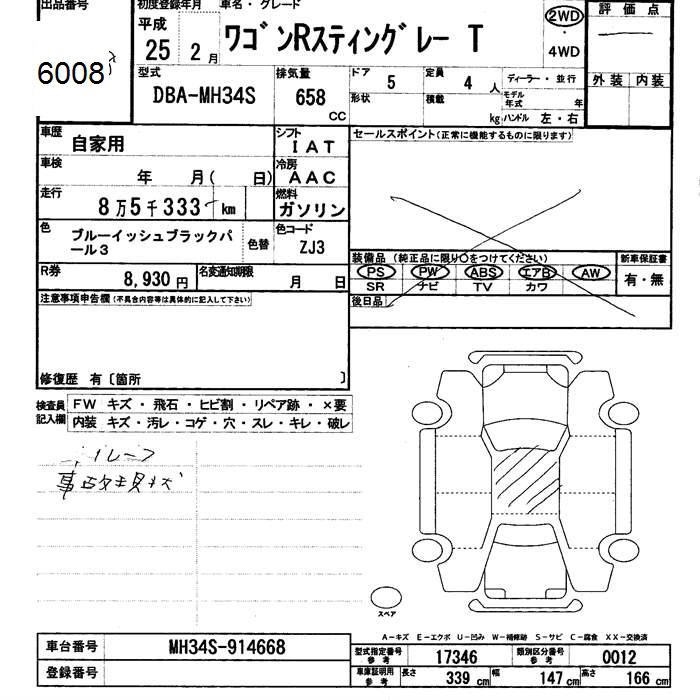 出品番号
6008
初度登録年月
平成
25 2 月
車名・グレード
ワゴンRスティングレー T
2WD
・
4WD
評価点
外装 内装
型式
DBA-MH34S
排気量
658
cc
ドア 5
形状
定員 4 人
積載 kg
ディーラー・並行
モデル年式 年
ハンドル 左・右
車歴
自家用
シフト
IAT
車検
年 月( 日)
冷房
AAC
走行
8万5千333 km
燃料
ガソリン
色
ブルーイッシュブラックパール3
色替
色コード
ZJ3
R券
8,930 円
名変通知期限
月 日
セールスポイント(正常に機能するものに限ります)
装備品(純正品に限り○をつけてください)
PS PW ABS エアB AW
SR ナビ TV カワ
新車保証書
有・無
後日品
注意事項申告欄(不具合内容等は具体的に記入して下さい)
修復歴 有〔箇所 〕
検査員記入欄
FW キズ・飛石・ヒビ割・リペア跡・×要
内装 キズ・汚レ・コゲ・穴・スレ・キレ・破レ
ルーフ
事故現状
スペア
A-キズ E-エクボ U-凹み W-補修跡 S-サビ C-腐食 XX-交換済
車台番号
MH34S-914668
登録番号
型式指定番号 参考
17346
類別区分番号 参考
0012
車庫証明用 参考
長さ 339 cm
幅 147 cm
高さ 166 cm